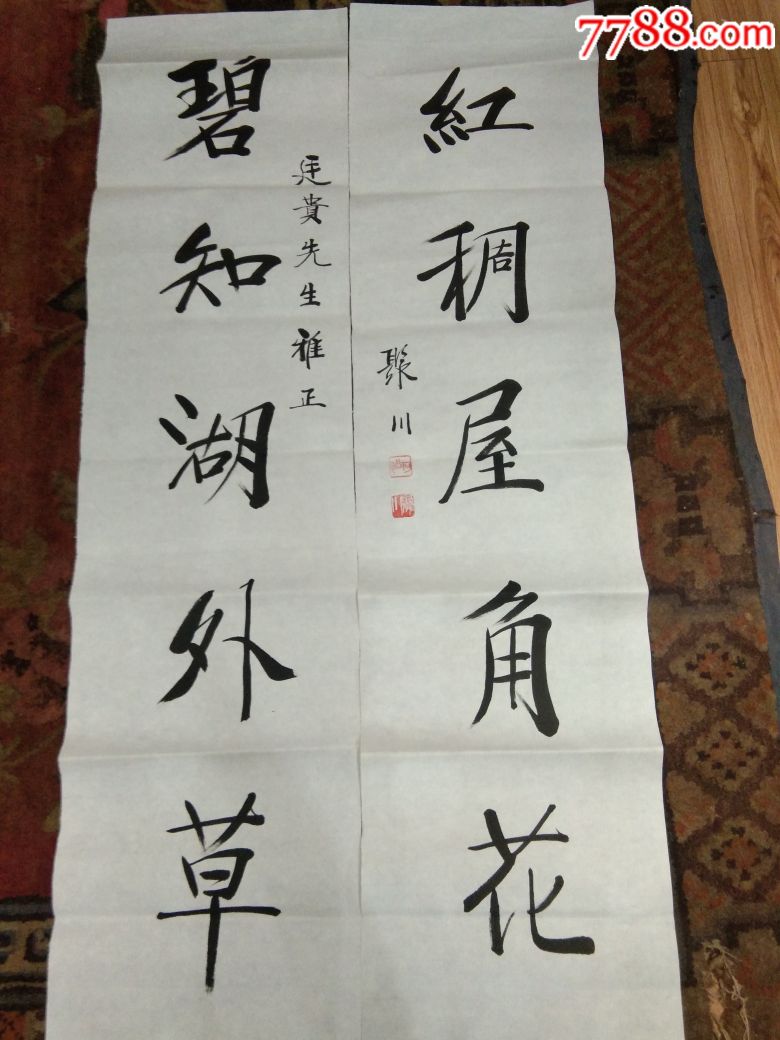 7788.com
碧知湖外草
廷貴先生雅正
紅稠屋角花
聚川